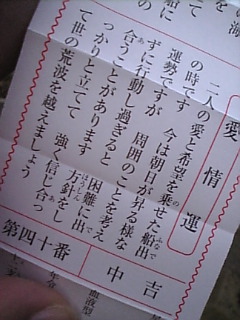 愛情運
二人の愛と希望を乗せた船出
の時です 今は朝日が昇る様な
運勢ですが 周囲のことを考え
ずに行動し過ぎると 困難に出
合うことがあります 方針をし
っかりと立てて 強く信じ合っ
て世の荒波を越えましょう
第四十番 中吉
血液型